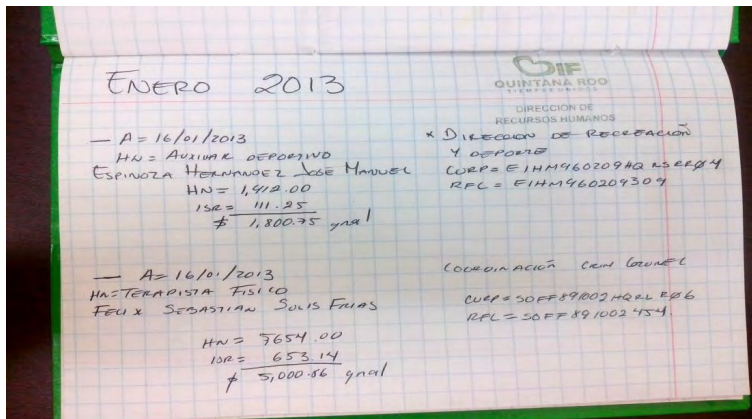 ENERO 2013
DIF
QUINTANA ROO
DIRECCION DE
RECURSOS HUMANOS
— A= 16/01/2013
HN= AUXILIAR DEPORTIVO
ESPINOZA HERNANDEZ JOSE MANUEL
HN= 1,912.00
ISR= 111.25
$ 1,800.75 qnal
* DIRECCION DE RECREACIÓN
Y DEPORTE
CURP= EIHM960209HQRSRR04
RFC= EIHM960209309
— A= 16/01/2013
HN= TERAPISTA FISICO
FELIX SEBASTIAN SOLIS FRIAS
HN= 7654.00
ISR= 653.14
$ 5,000.86 qnal
COORDINACIÓN CRIM COZUMEL
CURP= SOFF891002HQRL R06
RFC= SOFF891002454.